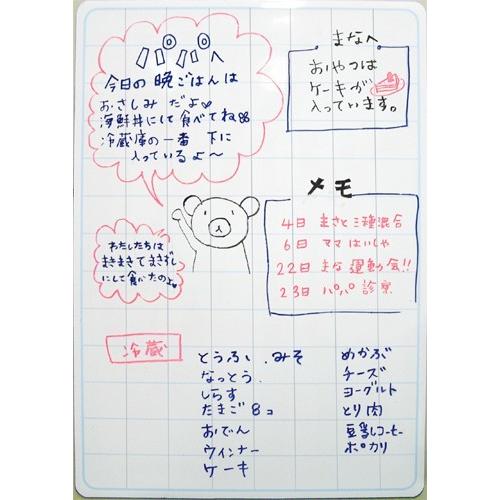 パパへ
今日の晩ごはんは
おさしみだよ
海鮮丼にして食べてね
冷蔵庫の一番下に
入っているよ～
まなへ
おやつは
ケーキが
入っています。
わたしたちは
まきまきてまきずし
にして食べたのよ
メモ
4日 まさと三種混合
6日 ママはいしゃ
22日 まな運動会!!
23日 パパ診察
冷蔵
とうふ、みそ
なっとう
しらす
たまご8コ
おでん
ウィンナー
ケーキ
めかぶ
チーズ
ヨーグルト
とり肉
豆乳コーヒー
ポカリ